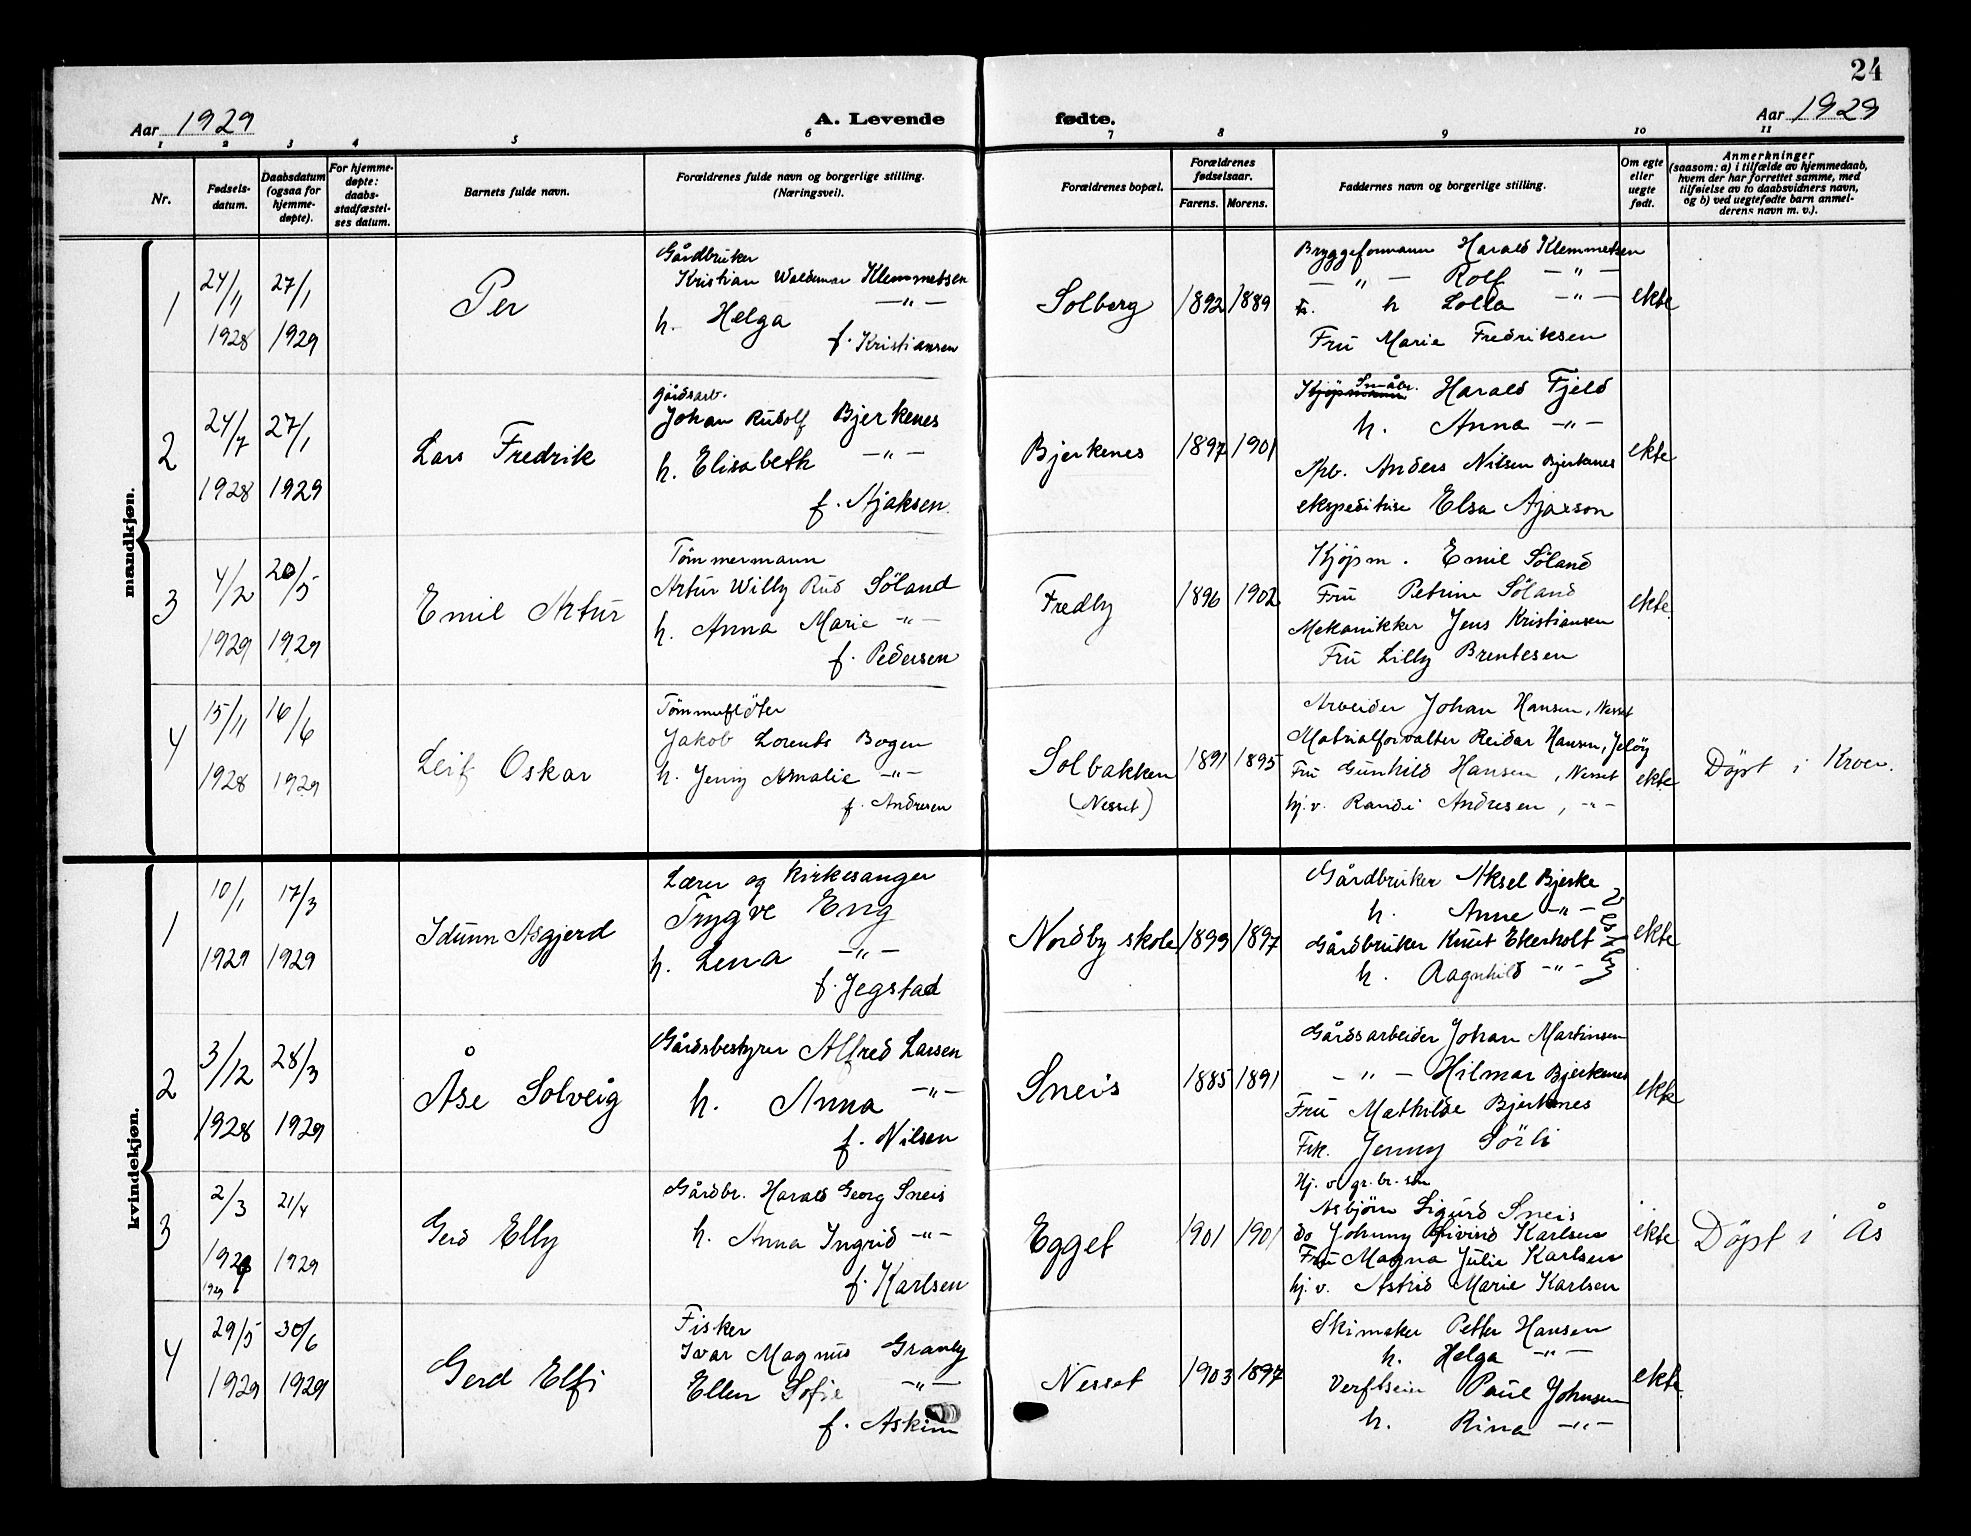 24
Aar 1929
A. Levende fødte.
Aar 1929
1 2 3 4 5 6 7 8 9 10 11
Nr.
Fødsels-
datum.
Daabsdatum
(ogsaa for
hjemme-
døpte).
For hjemme-
døpte:
daabs-
stadfæstel-
ses datum.
Barnets fulde navn.
Forældrenes fulde navn og borgerlige stilling.
(Næringsvei).
Forældrenes bopæl.
Forældrenes
fødselsaar.
Farens. Morens.
Faddernes navn og borgerlige stilling.
Om egte
eller
uegte
født.
Anmerkninger
(saasom: a) i tilfælde av hjemmedaab,
hvem der har forrettet samme, med
tilføielse av to daabsvidners navn,
og b) ved uegtefødte barn anmel-
derens navn m. v.).
mandkjøn.
1
24/11
1928
27/1
1929
Per
Gårdbruker
Kristian Waldemar Klemmetsen
h. Helga —"—
f. Kristiansen
Solberg
1892
1889
Bryggeformann Harald Klemmetsen
— " — Rolf —"—
h Lolla —"—
Fru Marie Fredriksen
ekte
2
24/7
1928
27/1
1929
Lars Fredrik
gårdsarb.
Johan Rudolf Bjerkenes
h. Elisabeth —"—
f. Ajaksen
Bjerkenes
1897
1901
Kjøpmann Småbr. Harald Fjeld
h. Anna —"—
Anders Nilsen Bjerkenes
ekspeditrise Elsa Ajaxson
ekte
3
4/2
1929
20/5
1929
Emil Artur
Tömmermann
Artur Willy Rud Söland
h. Anna Marie —"—
f. Pedersen
Fredly
1896
1902
Kjöpm. Emil Söland
Fru Petrine Söland
Mekanikker Jens Kristiansen
Fru Lilly Brentesen
ekte
4
15/11
1928
16/6
1929
Leif Oskar
Tömmerflöter
Jakob Lorents Bogen
h. Jenny Amalie —"—
f. Andresen
Solbakken
(Nesset)
1891
1895
Arbeider Johan Hansen, Nesset
Matrialforvalter Reidar Hansen, Jelöy
Fru Gunhild Hansen, Nesset
hj. v. Randi Andresen, —"—
ekte
Döpt i Kroer.
kvindekjøn.
1
10/1
1929
17/3
1929
Idunn Asgjerd
Lærer og kirkesanger
Trygve Eng
h. Lena —"—
f. Jegstad
Nordby skole
1899
1897
Gårdbruker Aksel Bjerke
h. Anne —"—
Gårdbruker Knut Ekerholt
h. Ragnhild —"—
Vestby
ekte
2
3/12
1928
28/3
1929
Åse Solveig
Gårdsbestyrer Alfred Larsen
h. Anna —"—
f. Nilsen
Sneis
1885
1891
Gårdsarbeider Johan Martinsen
— " — Hilmar Bjerkenes
Fru Mathilde Bjerkenes
Frk. Jenny Sörli
ekte
3
2/3
1929
21/4
1929
Gerd Elly
Gårdbr. Harald Georg Sneis
h. Anna Ingrid —"—
f. Karlsen
Egget
1901
1901
Hj. v. gr. br. sön
Asbjörn Sigurd Sneis
do Johnny Eivind Karlsen
Fru Magna Julie Karlsen
hj. v. Astrid Marie Karlsen
ekte
Döpt i Ås
4
29/5
1929
30/6
1929
Gerd Elfi
Fisker
Ivar Magnus Granly
Ellen Sofie —"—
f. Askim
Nesset
1903
1897
Skimaker Petter Hansen
h. Helga —"—
Verftseier Paul Johnsen
h. Rina —"—
ekte